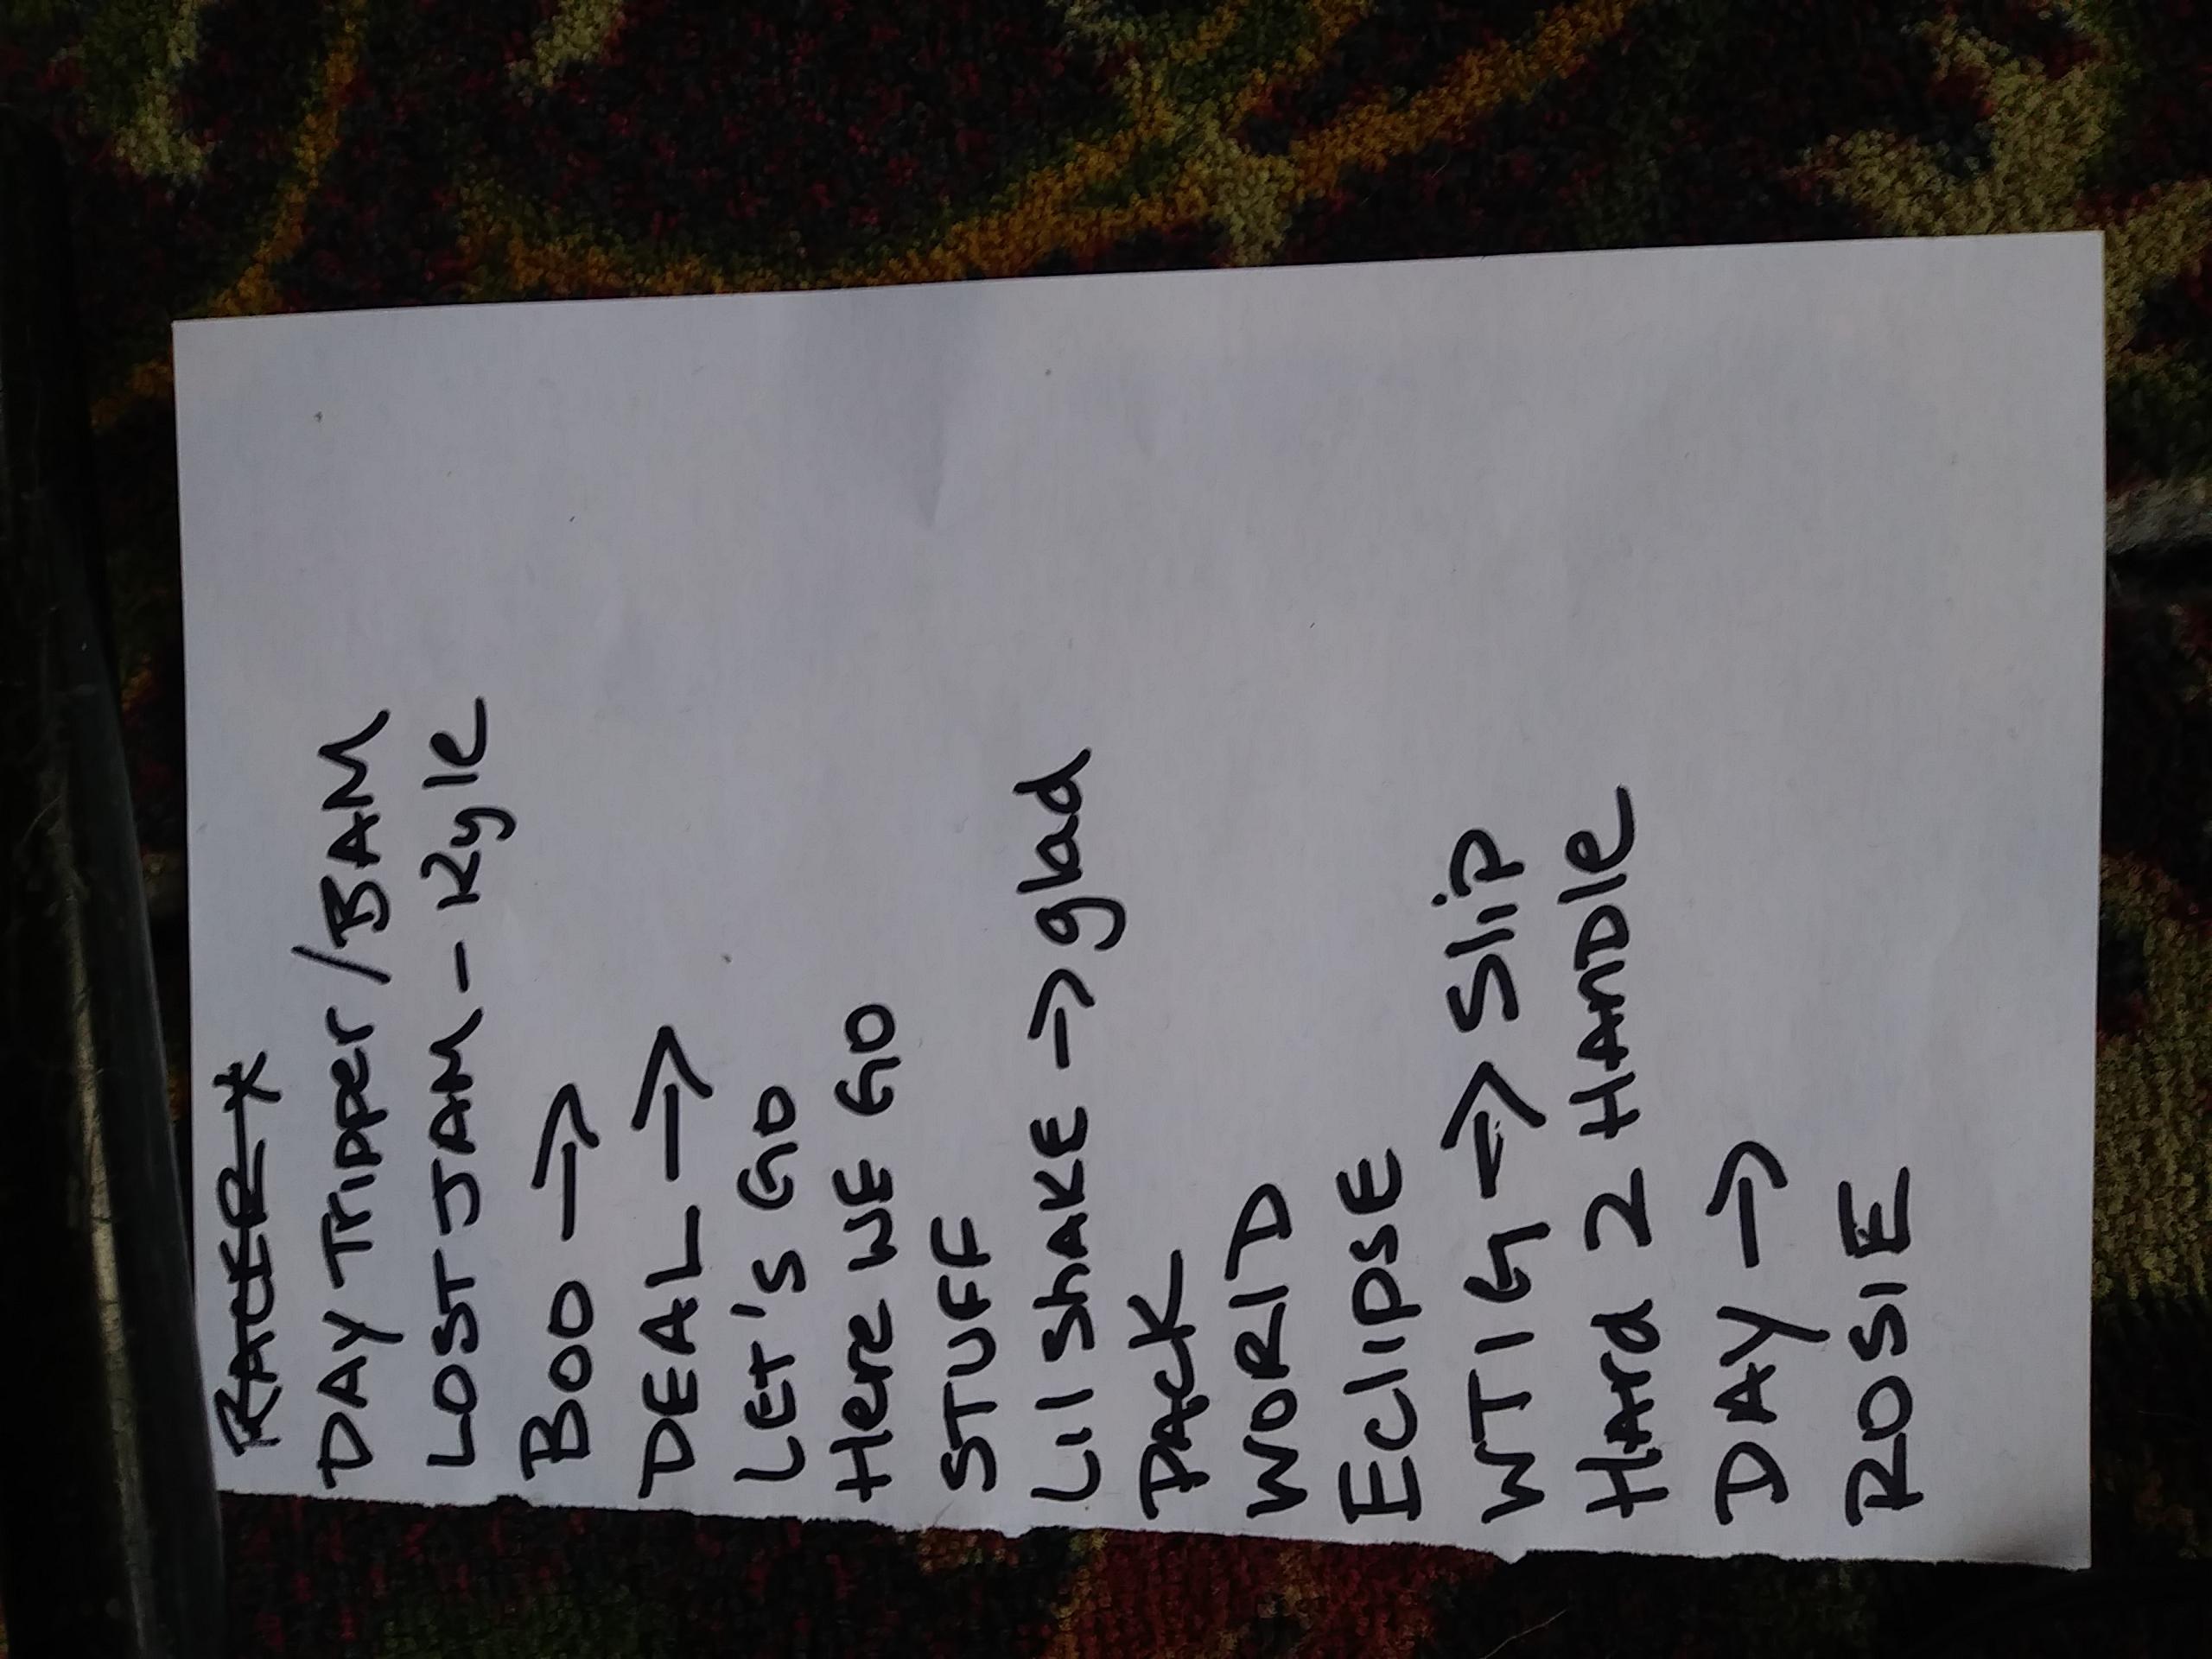 RACER *
DAY Tripper/BAM
LOST JAM - Kyle
Boo →
DEAL →
LET's Go
Here WE Go
STUFF
Lil ShAKE → glad
PACK
WORlD
EclipSE
WTIG → Slip
Hard 2 HAnDle
DAY →
ROSIE